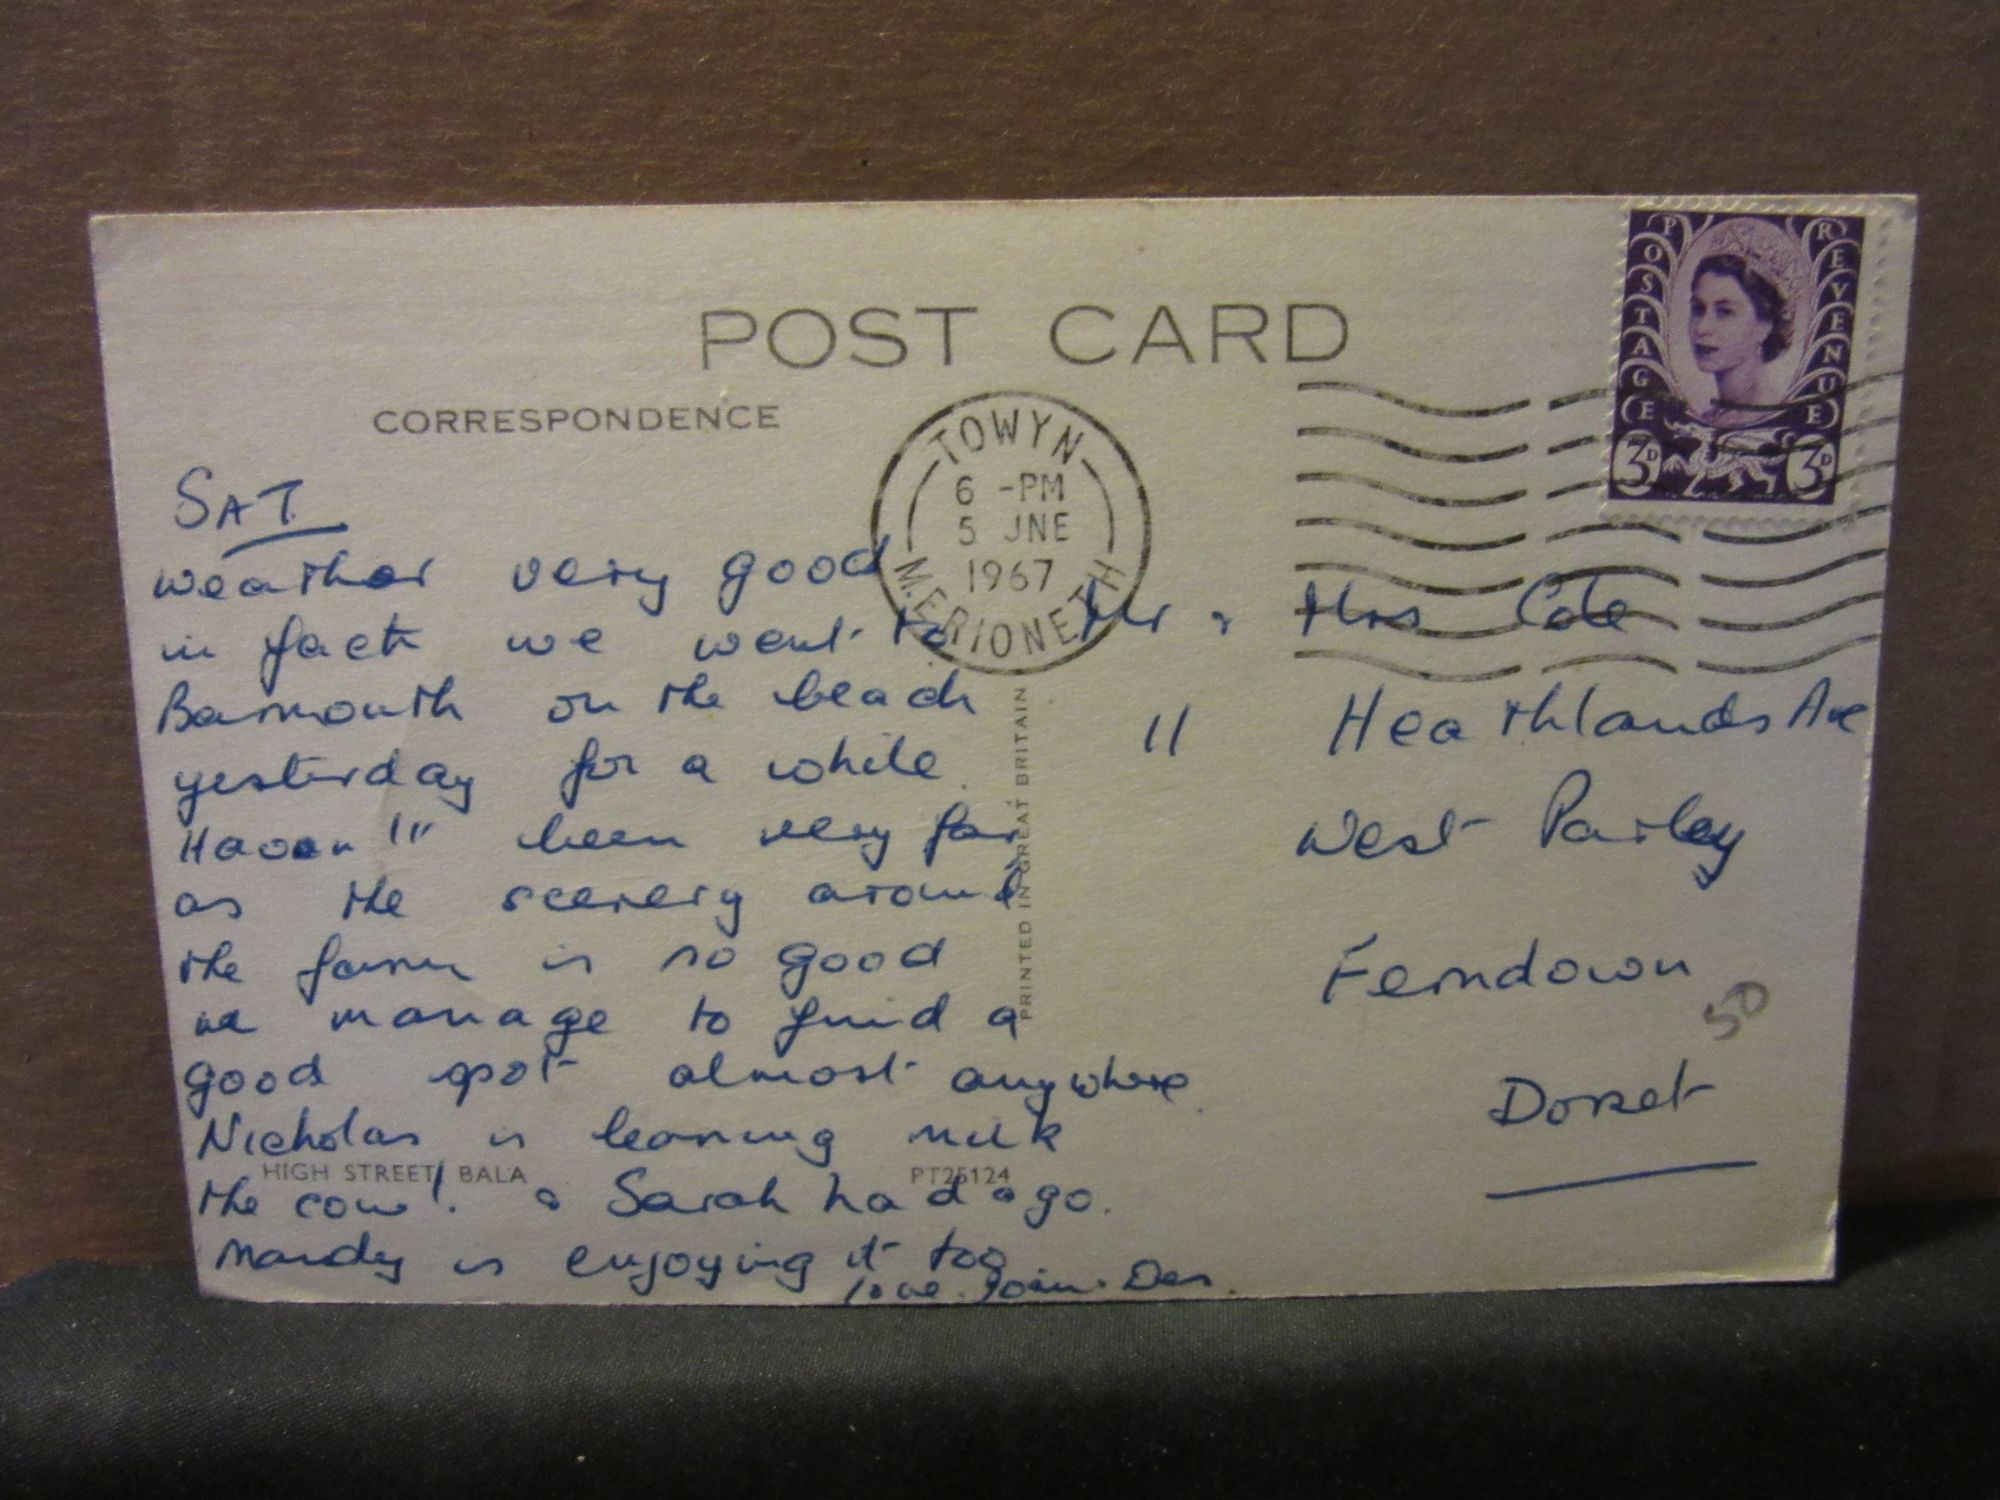 POST CARD
CORRESPONDENCE
POSTAGE REVENUE
3D 3D
TOWYN
6 -PM
5 JNE
1967
MERIONETH
SAT.
weather very good
in fact we went to
Barmouth on the beach
yesterday for a while.
Haven't been very far
as the scenery around
the farm is so good
we manage to find a
good spot almost anywhere.
Nicholas is learning milk
the cow! & Sarah had a go.
Mandy is enjoying it too
love. Des.
Mr & Mrs Cole
11 Heathlands Ave
West Parley
Ferndown
Dorset
50
PRINTED IN GREAT BRITAIN
HIGH STREET, BALA
PT25124